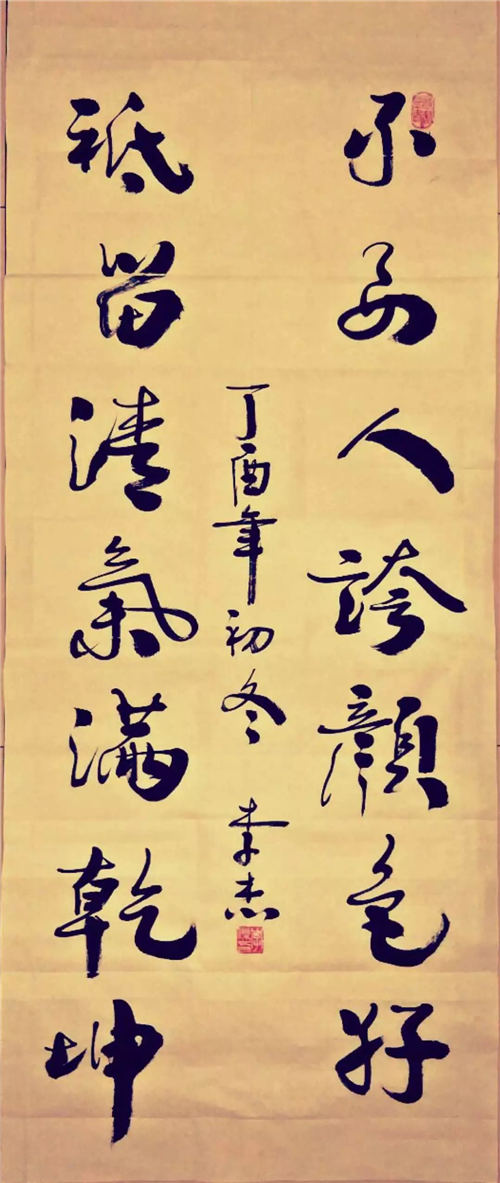 不要人誇顏色好
祗留清氣滿乾坤
丁酉年初冬 李杰